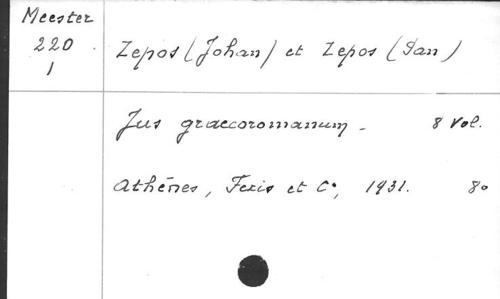 Meester
220
1
Zepos (Johan) et Zepos (Pan)
Jus graecoromanum - 8 Vol.
Athènes, Fexis et C°, 1931. 8°